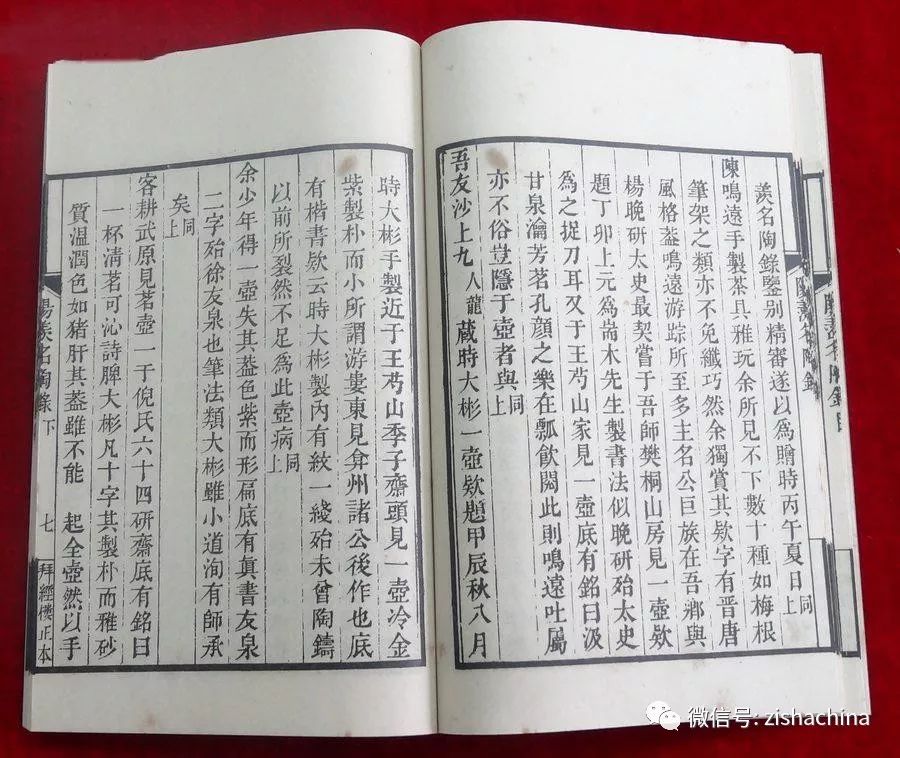 羨名陶錄鑒别精審遂以爲贈時丙午夏日同上
陳鳴遠手製茶具雅玩余所見不下數十種如梅根
筆架之類亦不免纖巧然余獨賞其欵字有晋唐
風格葢鳴遠游踪所至多主名公巨族在吾鄉與
楊晚研太史最契嘗于吾師樊桐山房見一壺欵
題丁卯上元爲耑木先生製書法似晚研殆太史
爲之捉刀耳又于王芍山家見一壺底有銘曰汲
甘泉瀹芳茗孔顔之樂在瓢飲閱此則鳴遠吐屬
亦不俗豈隱于壺者與同上
吾友沙上九人龍藏時大彬一壺欵題甲辰秋八月
時大彬手製近于王芍山季子齋頭見一壺冷金
紫製朴而小所謂游婁東見弇州諸公後作也底
有楷書欵云時大彬製內有紋一綫殆未曾陶鑄
以前所裂然不足爲此壺病同上
余少年得一壺失其葢色紫而形扁底有眞書友泉
二字殆徐友泉也筆法類大彬雖小道洵有師承
矣同上
客耕武原見茗壺一于倪氏六十四研齋底有銘曰
一杯清茗可沁詩脾大彬凡十字其製朴而雅砂
質温潤色如猪肝其葢雖不能 起全壺然以手
陽羨名陶錄下
七
拜經樓正本
微信号: zishachina